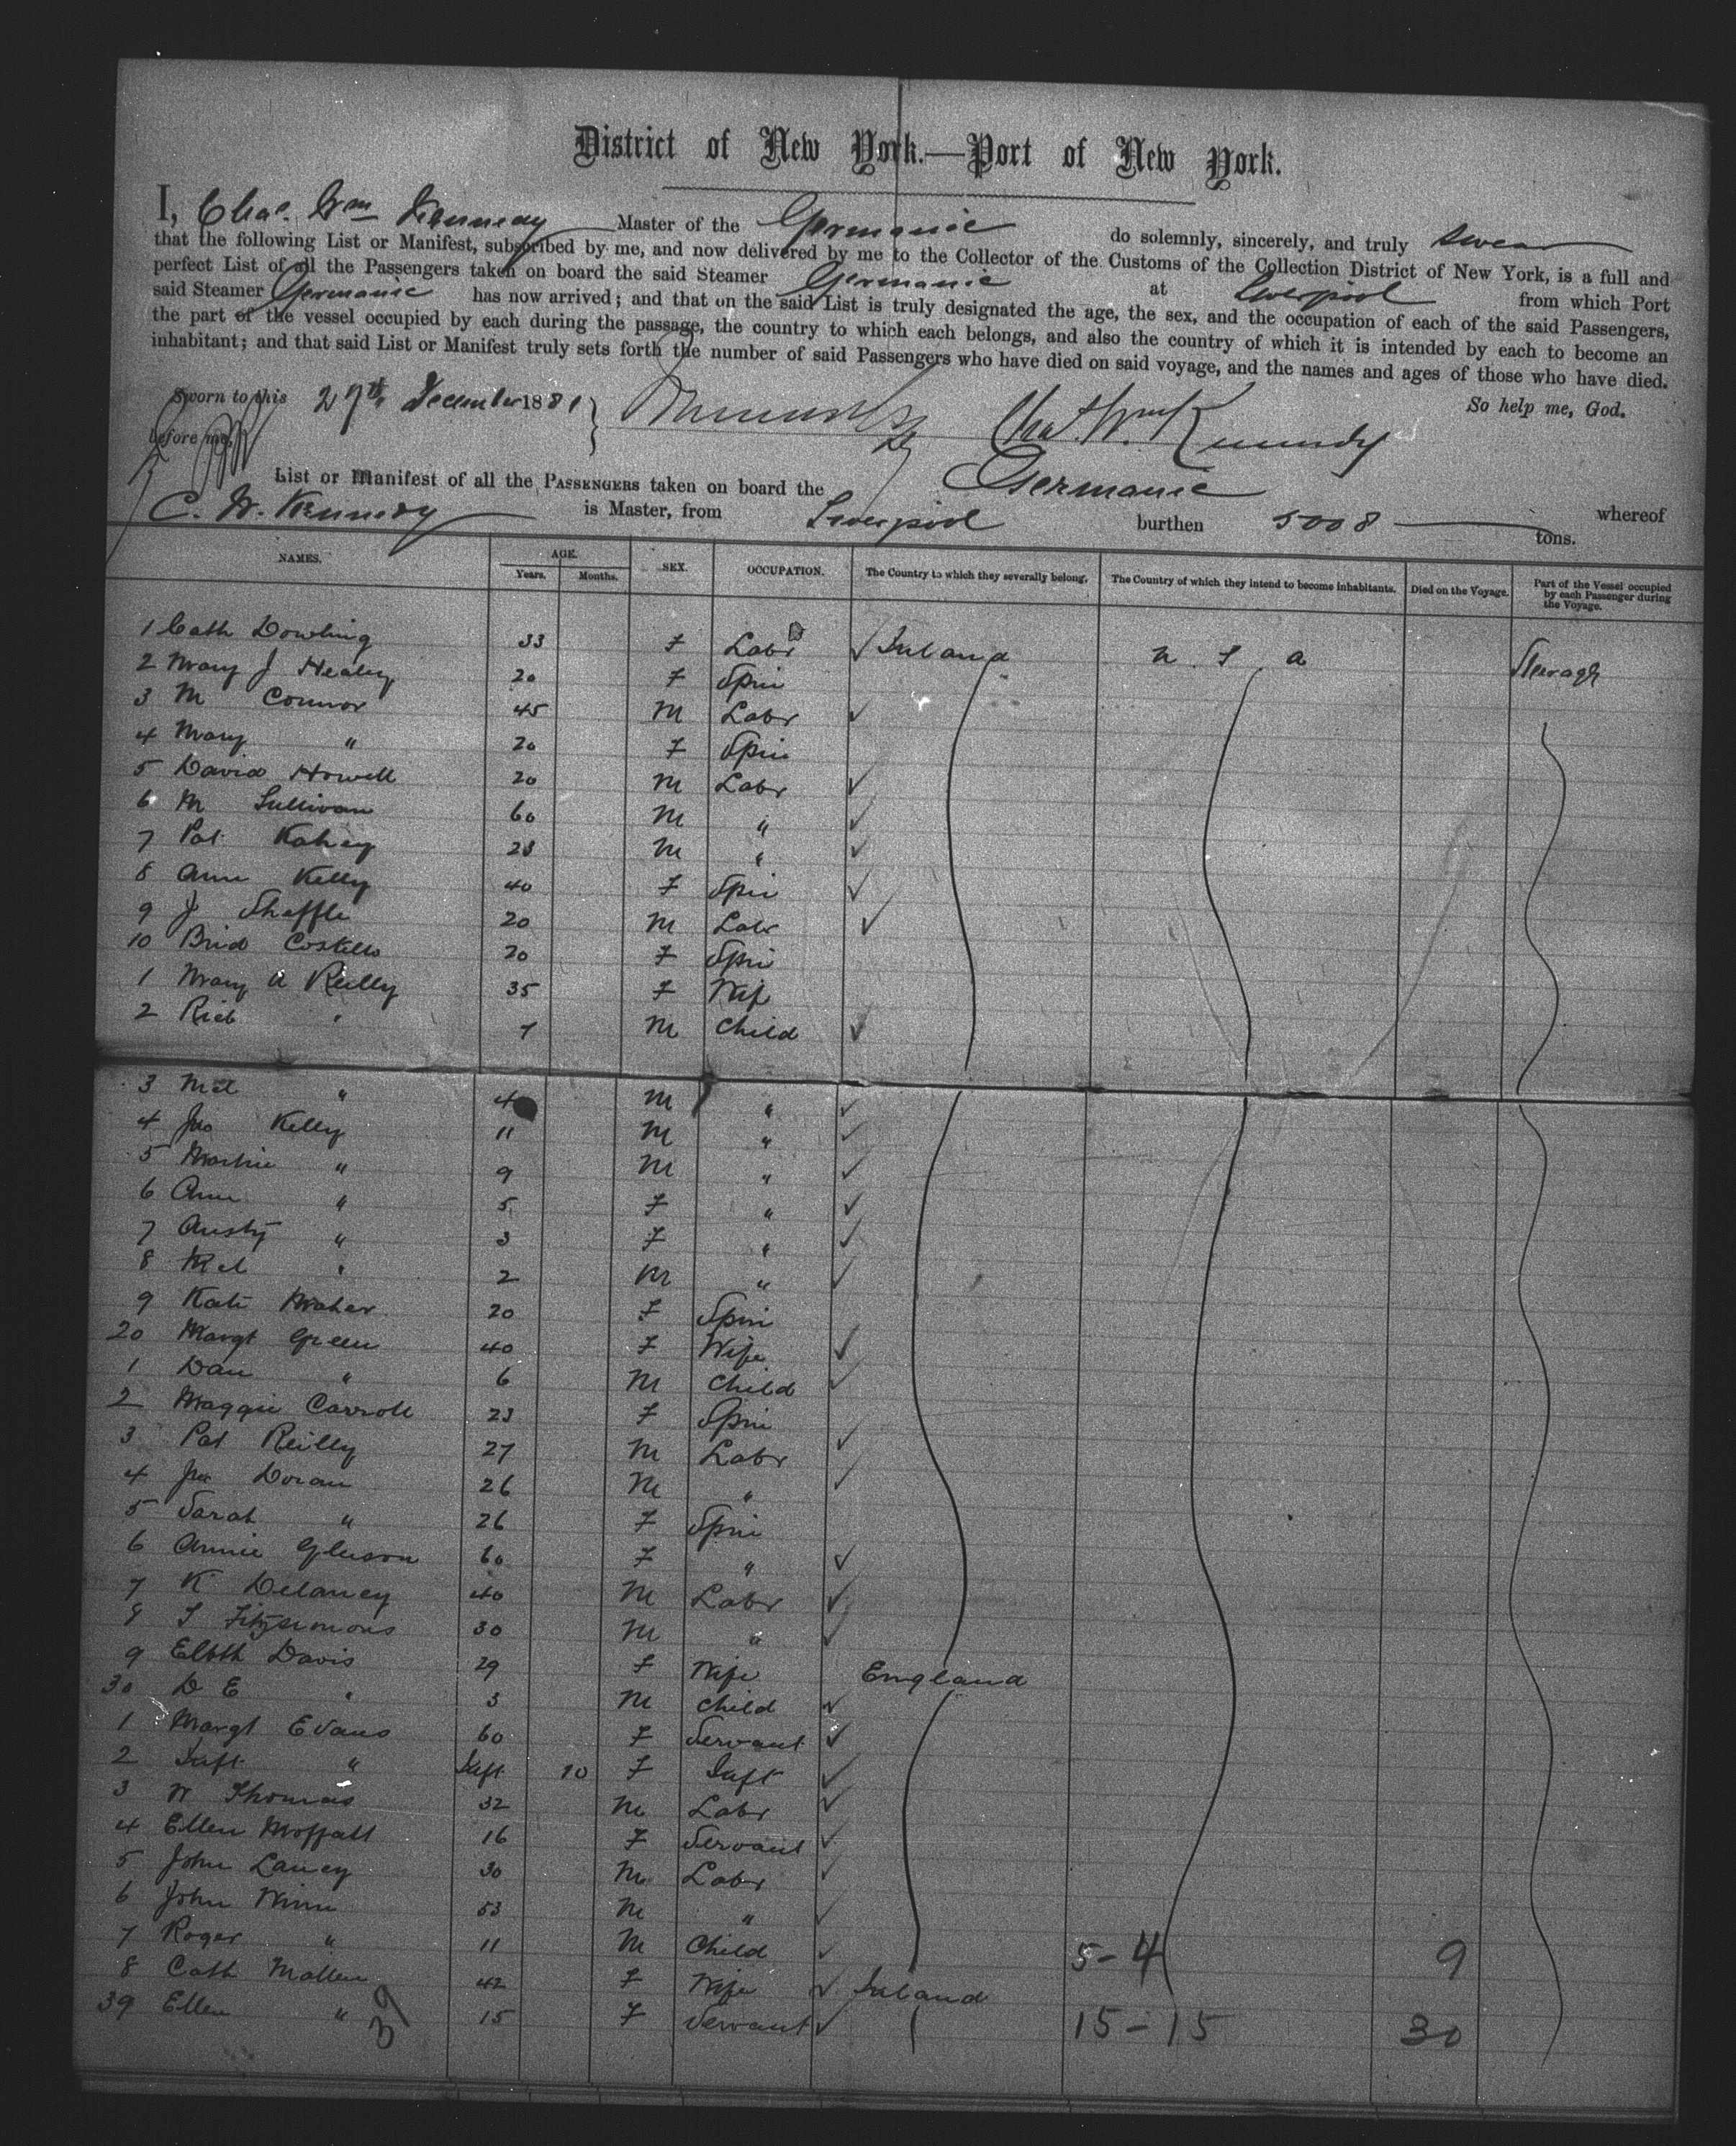 District of New York.—Port of New York.
I, Chas. Wm Kennedy Master of the Germanic do solemnly, sincerely, and truly swear
that the following List or Manifest, subscribed by me, and now delivered by me to the Collector of the Customs of the Collection District of New York, is a full and
perfect List of all the Passengers taken on board the said Steamer Germanic at Liverpool from which Port
said Steamer Germanic has now arrived; and that on the said List is truly designated the age, the sex, and the occupation of each of the said Passengers,
the part of the vessel occupied by each during the passage, the country to which each belongs, and also the country of which it is intended by each to become an
inhabitant; and that said List or Manifest truly sets forth the number of said Passengers who have died on said voyage, and the names and ages of those who have died.
So help me, God.
Sworn to this 27th December 1881
before me, Chas. W. Kennedy
List or Manifest of all the PASSENGERS taken on board the Germanic whereof
C. W. Kennedy is Master, from Liverpool burthen 5008 tons.
NAMES. AGE. Years. Months. SEX. OCCUPATION. The Country to which they severally belong. The Country of which they intend to become inhabitants. Died on the Voyage. Part of the Vessel occupied by each Passenger during the Voyage.
1 Cath Dowling 33 F Labr Ireland U S A Steerage
2 Mary J Healey 20 F Spin
3 M Connor 45 M Labr
4 Mary " 20 F Spin
5 David Howell 20 M Labr
6 M Sullivan 60 M "
7 Pat Kahey 23 M "
8 Ann Kelly 40 F Spin
9 J Shaffle 20 M Labr
10 Brid Costello 20 F Spin
1 Mary A Reilly 35 F Wife
2 Rich " 7 M Child
3 Ml " 4 M "
4 Jno Kelly 11 M "
5 Martin " 9 M "
6 Ann " 5 F "
7 Austy " 3 F "
8 Ml " 2 M "
9 Kate Maher 20 F Spin
20 Margt Green 40 F Wife
1 Dan " 6 M Child
2 Maggie Carroll 23 F Spin
3 Pat Reilly 27 M Labr
4 Jno Doran 26 M "
5 Sarah " 26 F Spin
6 Annie Gleeson 60 F "
7 K Delaney 40 M Labr
8 T Fitzsimons 30 M "
9 Elbth Davis 29 F Wife England
30 D E " 3 M Child
1 Margt Evans 60 F Servant
2 Inft " Inft 10 F Inft
3 W Thomas 32 M Labr
4 Ellen Moffatt 16 F Servant
5 John Laney 30 M Labr
6 John Winn 53 M "
7 Roger " 11 M Child 5-4 9
8 Cath Mallen 42 F Wife Ireland
39 Ellen " 15 F Servant 15-15 30
39